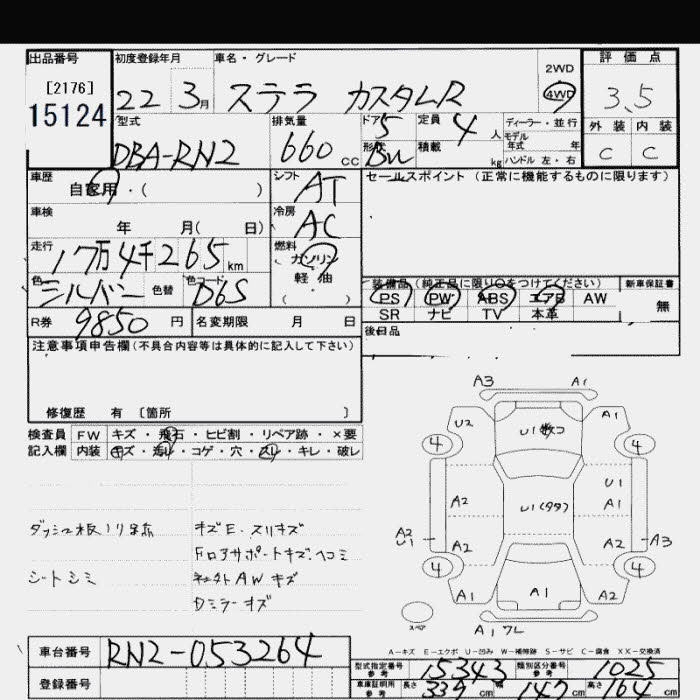 出品番号 初度登録年月 車名・グレード 評価点
[2176]
15124
22 3月 ステラ カスタムR 2WD 4WD 3.5
型式 排気量 ドア 定員 ディーラー・並行 外装 内装
DBA-RN2 660cc 5 4人 モデル年式 年 C C
形状 積載 kg ハンドル 左・右
車歴 シフト セールスポイント(正常に機能するものに限ります)
自家用・( ) AT
車検 冷房
年 月( 日) AC
走行 燃料
17万4千265km ガソリン
色 色替 色コード 軽油
シルバー D6S ( )
装備品(純正品に限り○をつけてください) 新車保証書
PS PW ABS エアB AW 無
SR ナビ TV 本革
R券 9850円 名変期限 月 日
後日品
注意事項申告欄(不具合内容等は具体的に記入して下さい)
修復歴 有〔箇所 〕
検査員 FW キズ・飛石・ヒビ割・リペア跡・×要
記入欄 内装 キズ・汚れ・コゲ・穴・スレ・キレ・破レ
キズE・スリキズ
Fロアサポートキズ、ヘコミ
シートシミ AWキズ
Dミラーキズ
A3 A1
U2 U1 A1
4 4
U1
A2 U1(タタ) A1
A2 U1 A2 A2 A3
4 4
A1 A1 A2
スペア A1 ワレ
A-キズ E-エクボ U-凹み W-補修跡 S-サビ C-腐食 XX-交換済
車台番号 RN2-053264
型式指定番号 参考 15343 類別区分番号 参考 1025
登録番号
車庫証明用 参考 長さ 339cm 幅 147cm 高さ 164cm